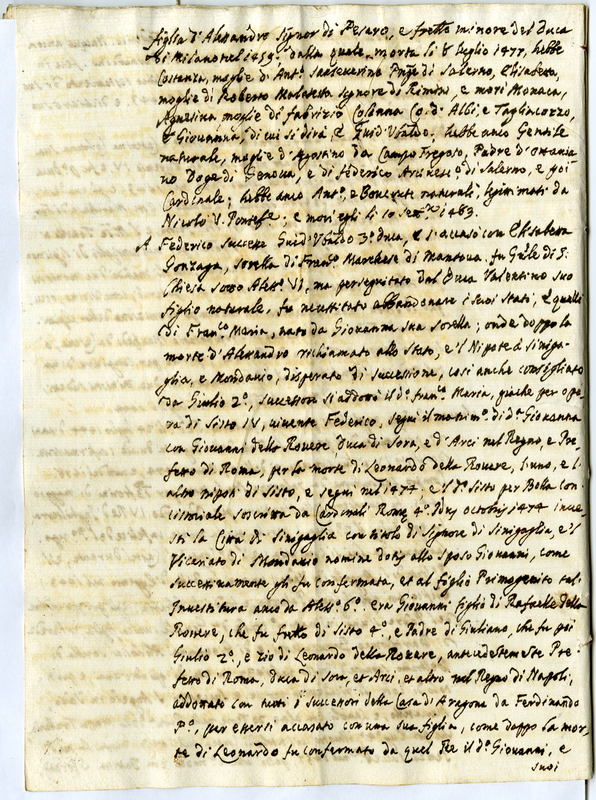 figlia d'Alessandro Signor di Pesaro, e frẽllo minore del Duca
di Milano nel 1459. dalla quale, morta li 6 Luglio 1477, hebbe
Costanza, moglie di Ant.º Sanseverino Prñpe di Salerno, Elisabetta,
moglie di Roberto Malatesta Signore di Rimino, e morì Monaca,
Agnesina moglie di fabrizio Colonna Co: d'Albi, e Tagliacozzo,
e Giovanna, di cui si dirà, e Guid'Ubaldo. hebbe anco Gentile
naturale, moglie d'Agostino da Campo Fregoso, Padre d'Ottavia-
no Doge di Genova, e di federico Arcivesc.º di Salerno, e poi
Cardinale; hebbe anco Ant.º, e Bonconte naturali, legitimati da
Nicolò V. Pontef.e; e morì egli li 10 Sett.re 1483.
A Federico successe Guid'Ubaldo 3.º Duca, e s'accasò con Elisabetta
Gonzaga, sorella di Fran.co Marchese di Mantova. fu Gn̄le di S.
Chiesa sotto Aless.º VI, ma perseguitato dal Duca Valentino suo
figlio naturale, fu necessitato abbandonare i suoi Stati, e quelli
di Fran.co Maria, nato da Giovanna sua sorella; onde doppo la
morte d'Alessandro richiamato allo Stato, e 'l Nipote à Siniga-
glia, e Mondavio, disperato di successione, così anche consigliato
da Giulio 2.º, successore si addottò il d.º fran.co Maria, giache per ope-
ra di Sisto IV, vivente Federico, seguì il matrim.º di d.ª Giovanna
con Giovanni della Rovere Duca di Sora, e d'Arci nel Regno, e Pre-
fetto di Roma, per la morte di Leonardo della Rovere, l'uno, e l'
altro nipoti di Sisto, e seguì nel 1474, e 'l d.º Sisto per Bolla con-
cistoriale soscritta da Cardinali Rome 4.º Idus octobris 1474 inve-
stì la Città di Sinigaglia con titolo di Signore di Sinigaglia, e 'l
Vicariato di Mondavio nomine dotis allo sposo Giovanni, come
successivamente gli fu confermata, et al figlio Primogenito tal'
Investitura anco da Aless.º 6.º era Giovanni figlio di Rafaelle della
Rovere, che fu frẽllo di Sisto 4.º, e Padre di Giuliano, che fu poi
Giulio 2.º, e zio di Leonardo della Rovere, antecedentemente Pre-
fetto di Roma, Duca di Sora, et Arci, et altro nel Regno di Napoli,
addottato con tutti i successori della Casa di Aragona da Ferdinando
P.º, per essersi accasato con una sua figlia, come doppo la mor-
te di Leonardo fu confermato da quel Re il d.º Giovanni, e
suoi